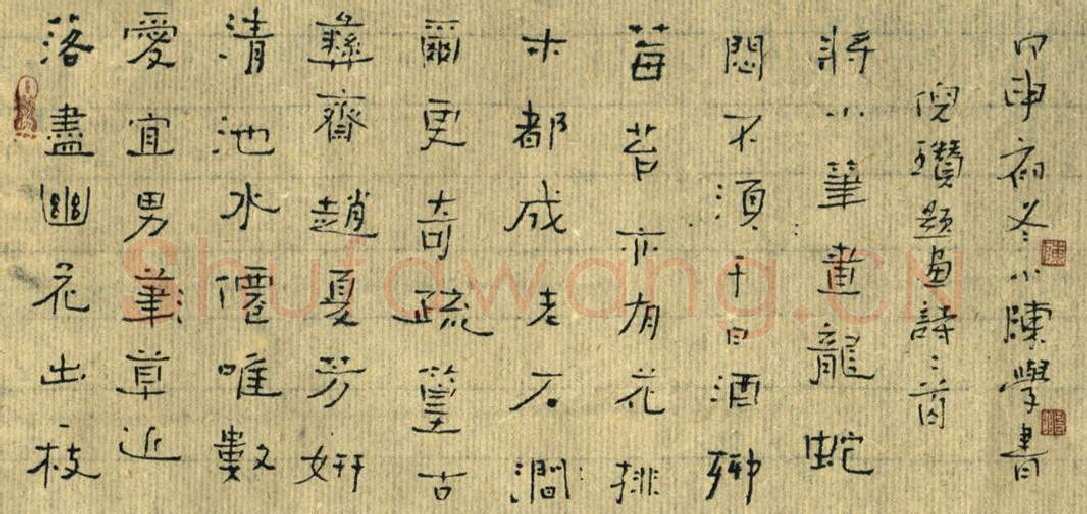 落盡幽花出枝
愛宜男草近
清池水僊唯數
彝齋趙夏芳妍
爾更奇疏篁古
木都成老石澗
莓苔亦有花排
悶不須千日酒聊
將小筆畫龍蛇
倪瓚題畫詩二首
甲申初冬小陳學書
Shufawang.CN